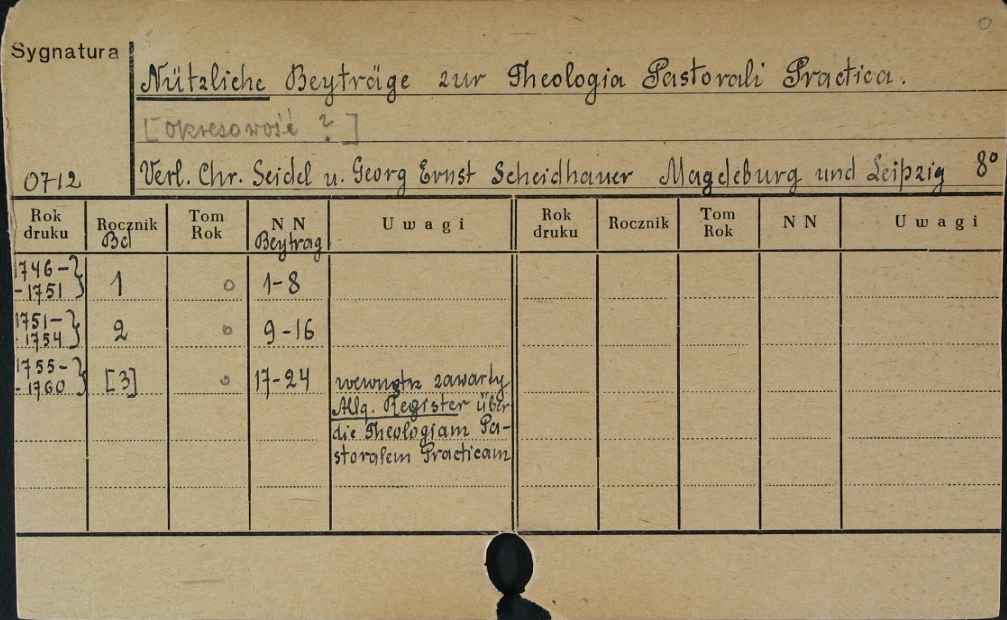 Sygnatura
Nützliche Beyträge zur Theologia Pastorali Practica.
[okresowość ?]
0712
Verl. Chr. Seidel u. Georg Ernst Scheidhauer Magdeburg und Leipzig 8°
Rok druku Rocznik Bd Tom Rok NN Beytrag Uwagi Rok druku Rocznik Tom Rok NN Uwagi
1746-
-1751} 1 o 1-8
1751-
-1754} 2 o 9-16
1755-
-1760} [3] o 17-24 wewnątrz zawarty
Allg. Register über
die Theologiam Pa-
storalem Practicam